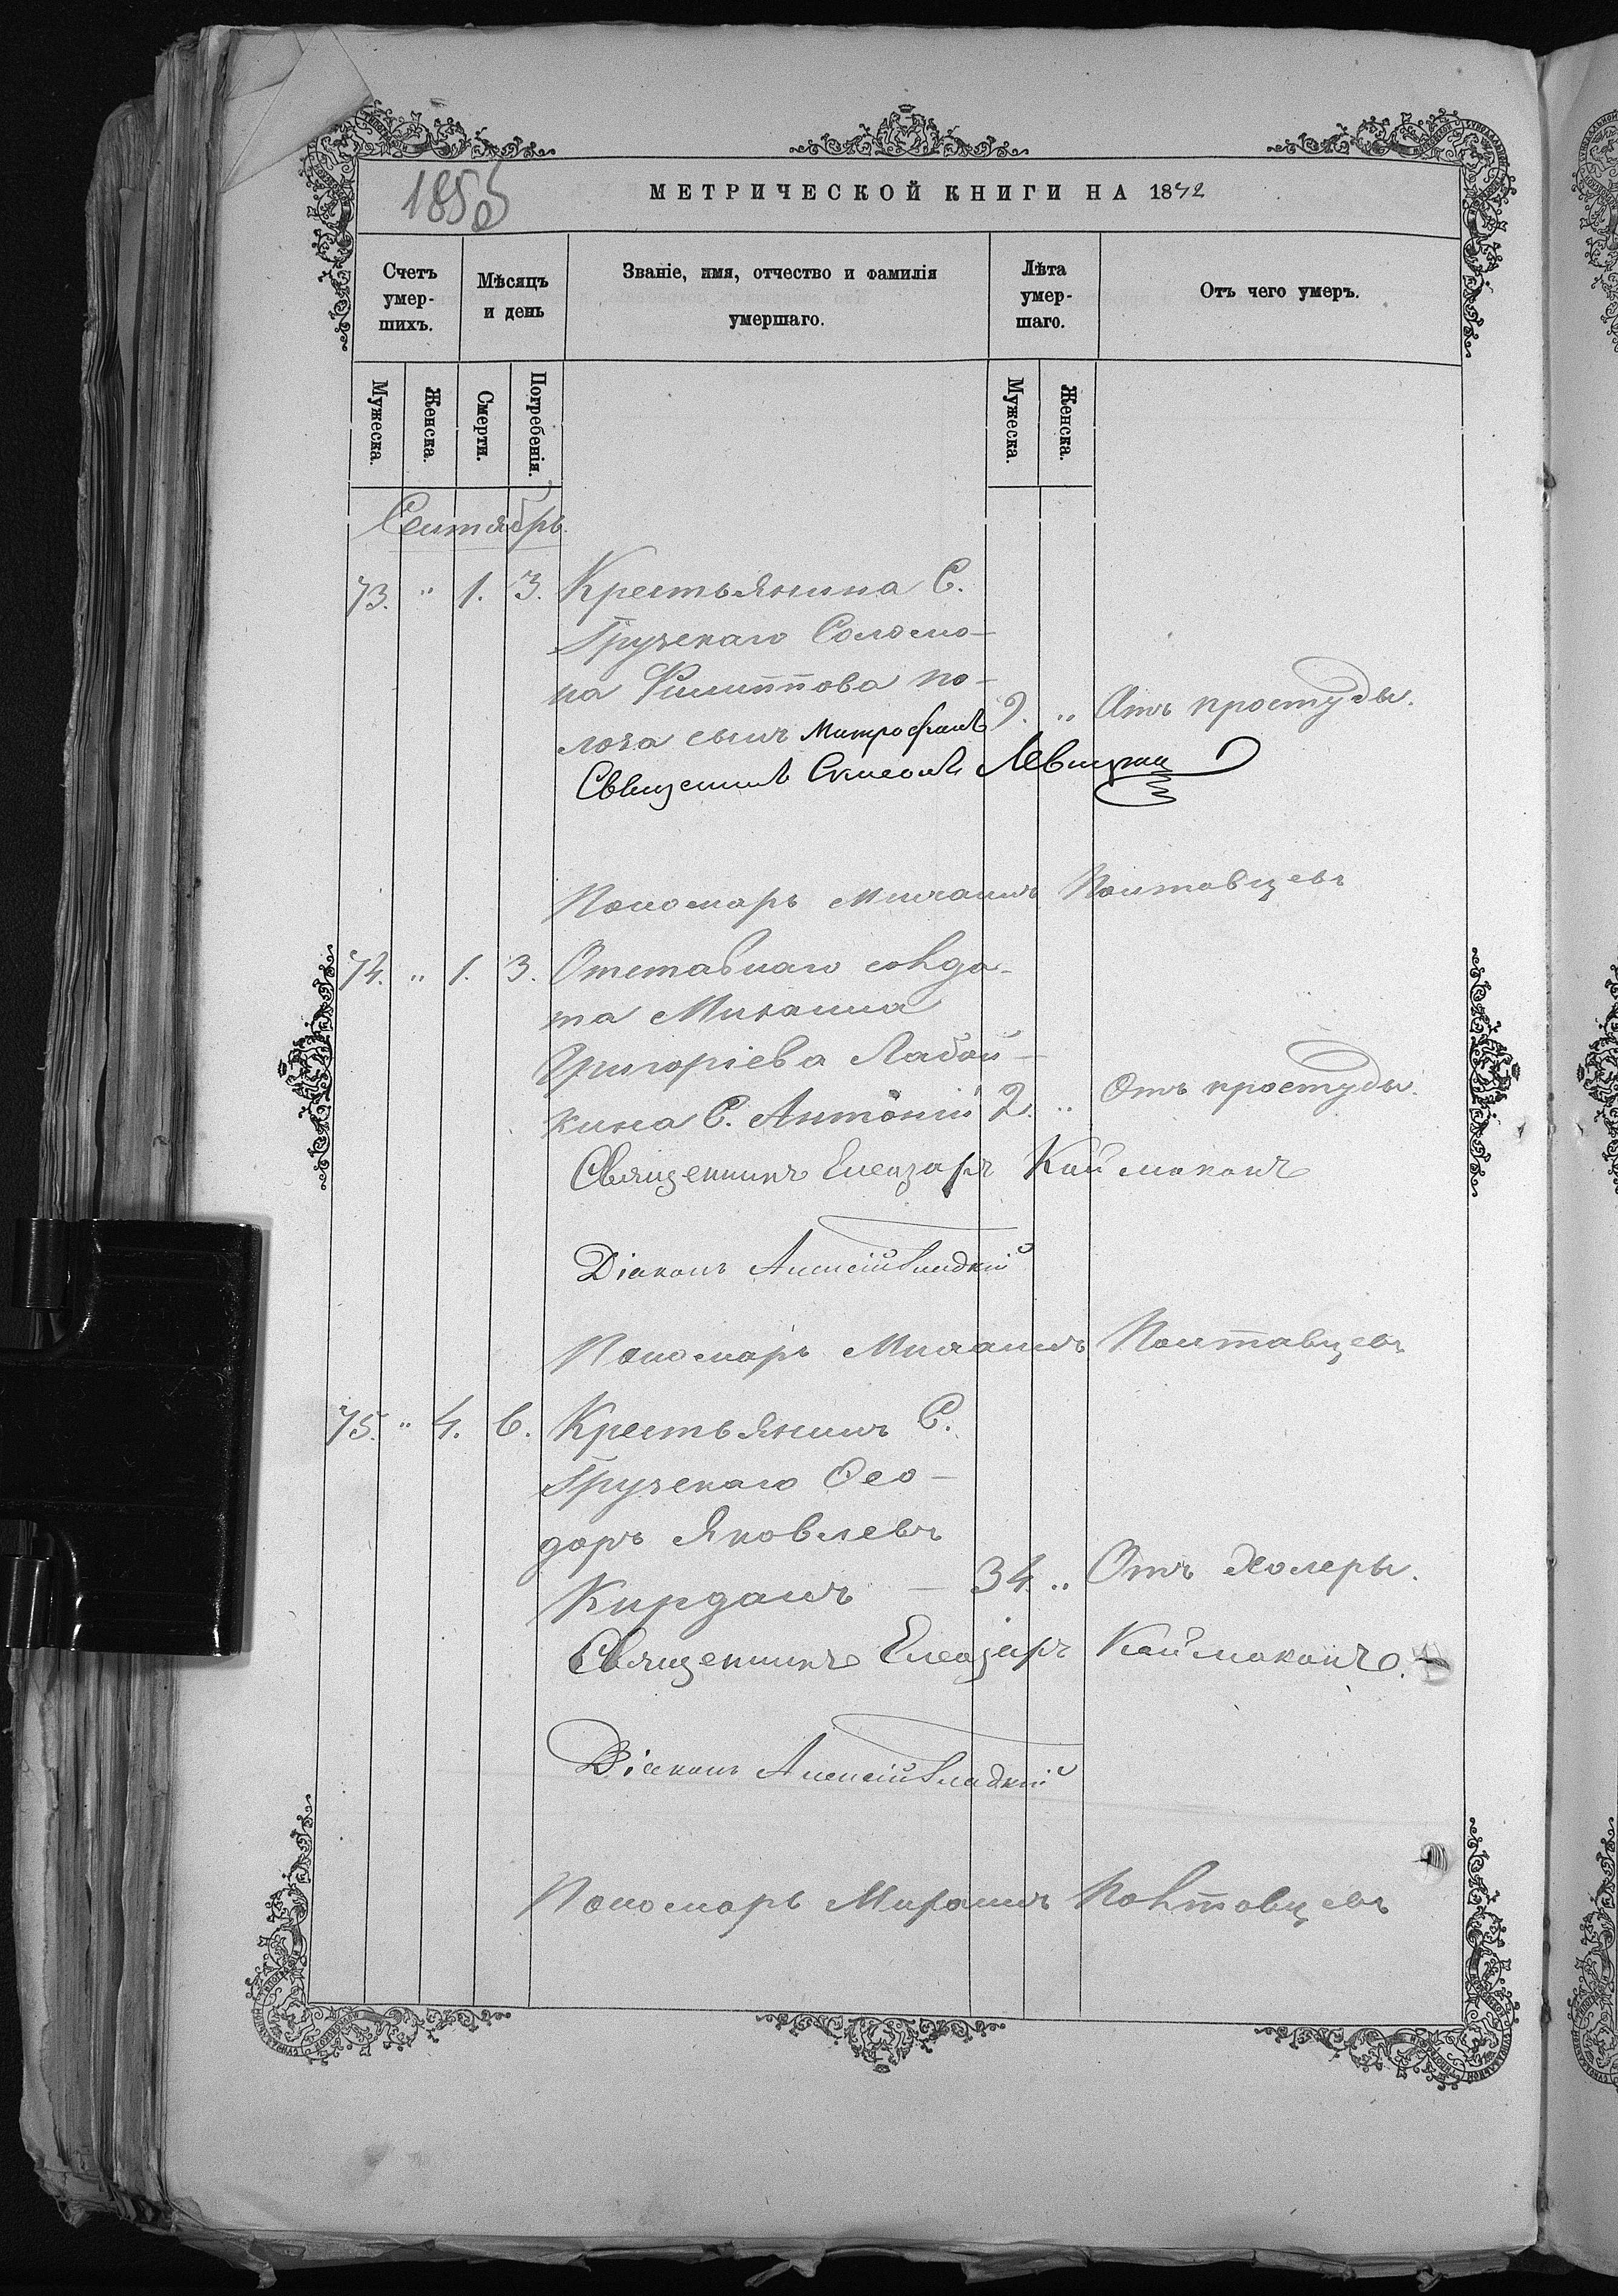 1855
МЕТРИЧЕСКОЙ КНИГИ НА 1872
Счетъ умер-шихъ.
Мѣсяцъ и день
Званіе, имя, отчество и фамилія умершаго.
Лѣта умер-шаго.
Отъ чего умеръ.
Мужеска. Женска. Смерти. Погребенія. Мужеска. Женска.
Сентябрь.
73. " 1. 3. Крестьянина С.
Грузскаго Соломо-
на Филиппова По-
лоза сынъ Митрофанъ 9. " Отъ простуды.
Священникъ Симеонъ Левицкий
Пономарь Михаилъ Полтавцевъ
74. " 1. 3. Отставнаго солда-
та Михаила
Григоріева Лабой-
кина С. Антоній 2. " Отъ простуды.
Священникъ Елеазаръ Каймаканъ
Діаконъ Алексій
Пономарь Михаилъ Полтавцевъ
75. " 4. 6. Крестьянинъ С.
Грузскаго Ѳео-
доръ Яковлевъ
Кирданъ — 34. " Отъ холеры.
Священникъ Елеазаръ Каймаканъ.
Діаконъ Алексій
Пономарь Михаилъ Полтавцевъ